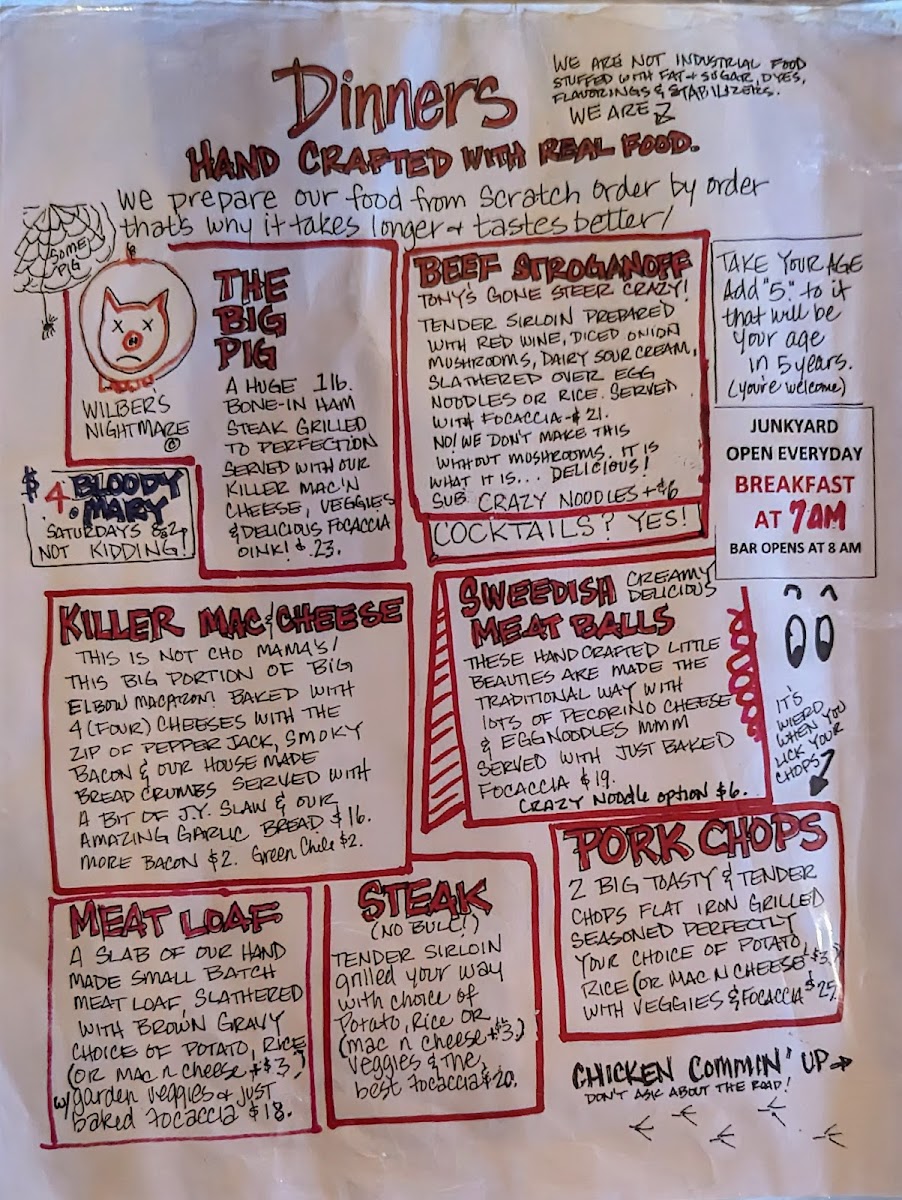 Dinners
WE ARE NOT INDUSTRIAL FOOD
STUFFED WITH FAT + SUGAR, DYES,
FLAVORINGS & STABILIZERS.
WE ARE
HAND CRAFTED WITH REAL FOOD.
We prepare our food from scratch order by order
that's why it takes longer + tastes better!
SOME
PIG
WILBER'S
NIGHTMARE
THE
BIG
PIG
A HUGE 1 lb.
BONE-IN HAM
STEAK GRILLED
TO PERFECTION
SERVED WITH OUR
KILLER MAC'N
CHEESE, VEGGIES
& DELICIOUS FOCACCIA
OINK! $ 23.
BEEF STROGANOFF
TONY'S GONE STEER CRAZY!
TENDER SIRLOIN PREPARED
WITH RED WINE, DICED ONION
MUSHROOMS, DAIRY SOUR CREAM,
SLATHERED OVER EGG
NOODLES OR RICE. SERVED
WITH FOCACCIA $21.
NO! WE DON'T MAKE THIS
WITHOUT MUSHROOMS. IT IS
WHAT IT IS... DELICIOUS!
SUB. CRAZY NOODLES +$6
COCKTAILS? YES!
TAKE YOUR AGE
Add "5" to it
that will be
your age
in 5 years.
(you're welcome)
JUNKYARD
OPEN EVERYDAY
BREAKFAST
AT 7AM
BAR OPENS AT 8 AM
$4. BLOODY
MARY
SATURDAYS 8a2p
NOT KIDDING!
KILLER MAC & CHEESE
THIS IS NOT CHO MAMA'S!
THIS BIG PORTION OF BIG
ELBOW MACARONI BAKED WITH
4 (FOUR) CHEESES WITH THE
ZIP OF PEPPER JACK, SMOKY
BACON & OUR HOUSE MADE
BREAD CRUMBS SERVED WITH
A BIT OF J.Y. SLAW & OUR
AMAZING GARLIC BREAD $16.
MORE BACON $2. Green Chile $2.
SWEEDISH CREAMY
DELICIOUS
MEAT BALLS
THESE HANDCRAFTED LITTLE
BEAUTIES ARE MADE THE
TRADITIONAL WAY WITH
LOTS OF PECORINO CHEESE
& EGG NOODLES MMM
SERVED WITH JUST BAKED
FOCACCIA $19.
CRAZY NOODLE OPTION $6.
IT'S
WIERD
WHEN YOU
LICK YOUR
CHOPS
MEAT LOAF
A SLAB OF OUR HAND
MADE SMALL BATCH
MEAT LOAF, SLATHERED
WITH BROWN GRAVY
CHOICE OF POTATO, RICE
(OR MAC n CHEESE +$3.)
w/garden veggies & just
baked focaccia $18.
STEAK
(NO BULL!)
TENDER SIRLOIN
grilled your way
with choice of
Potato, Rice OR
(mac n cheese +$3.)
veggies & the
best focaccia $20.
PORK CHOPS
2 BIG TOASTY & TENDER
CHOPS FLAT IRON GRILLED
SEASONED PERFECTLY
YOUR CHOICE OF POTATO,
RICE (OR MAC N CHEESE +$3.)
WITH VEGGIES & FOCACCIA $25.
CHICKEN COMMIN' UP
DON'T ASK ABOUT THE ROAD!